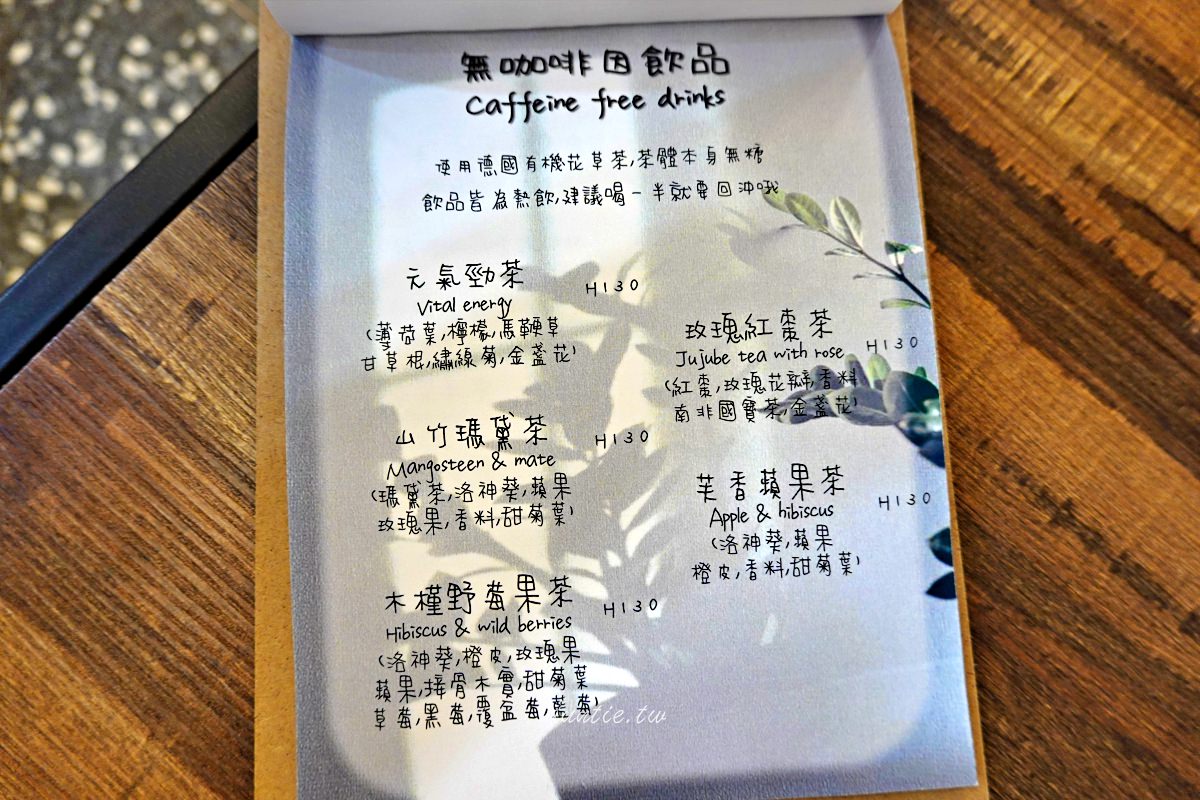 無咖啡因飲品
Caffeine free drinks
使用德國有機花草茶,茶體本身無糖
飲品皆為熱飲,建議喝一半就要回沖哦
元氣勁茶 H130
Vital energy
(薄荷葉,檸檬,馬鞭草
甘草根,繡線菊,金盞花)
山竹瑪黛茶 H130
Mangosteen & mate
(瑪黛茶,洛神葵,蘋果
玫瑰果,香料,甜菊葉)
木槿野莓果茶 H130
Hibiscus & wild berries
(洛神葵,橙皮,玫瑰果
蘋果,接骨木實,甜菊葉
草莓,黑莓,覆盆莓,藍莓)
玫瑰紅棗茶 H130
Jujube tea with rose
(紅棗,玫瑰花瓣,香料
南非國寶茶,金盞花)
芙香蘋果茶 H130
Apple & hibiscus
(洛神葵,蘋果
橙皮,香料,甜菊葉)